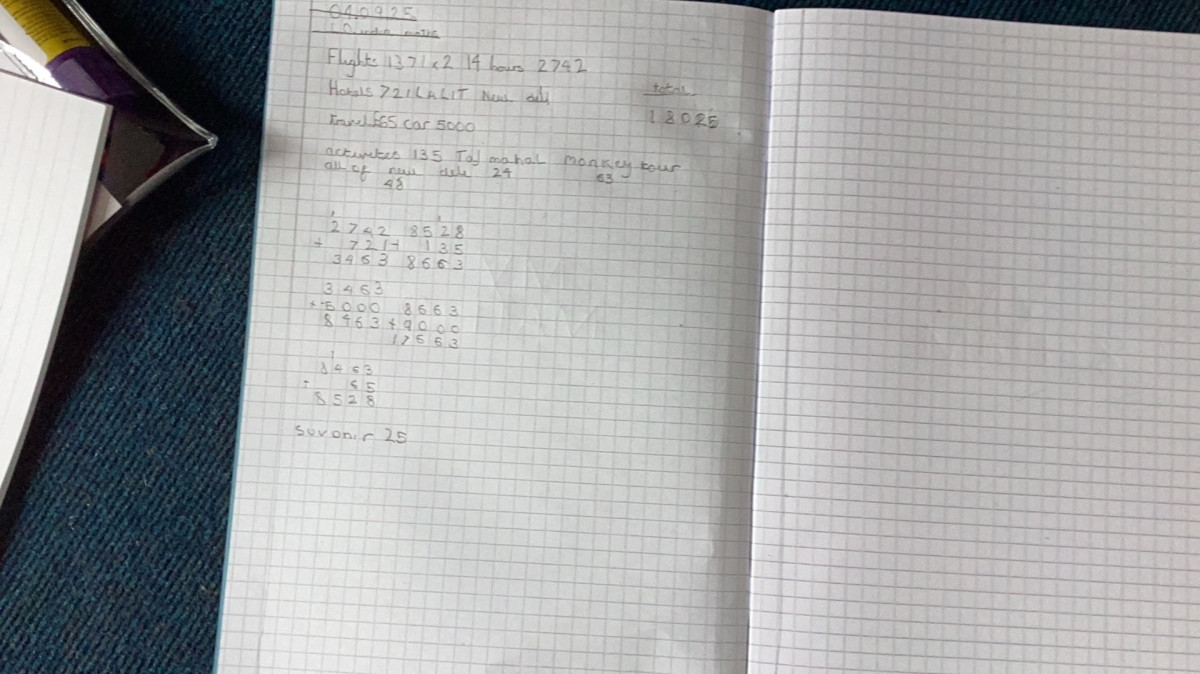 04.09.25
LO India maths
Flights 1371 x2 14 hours 2742
Hotels 721 LALIT New deli
Travel £65 car 5000
total
18025
activites 135 Taj mahal monkey tour
all of new dele 24 63
48
2742 8528
+ 721 + 135
3463 8663
3463
+ 5000 8663
8463 + 9000
17663
8463
+ 65
8528
Suvonir 25